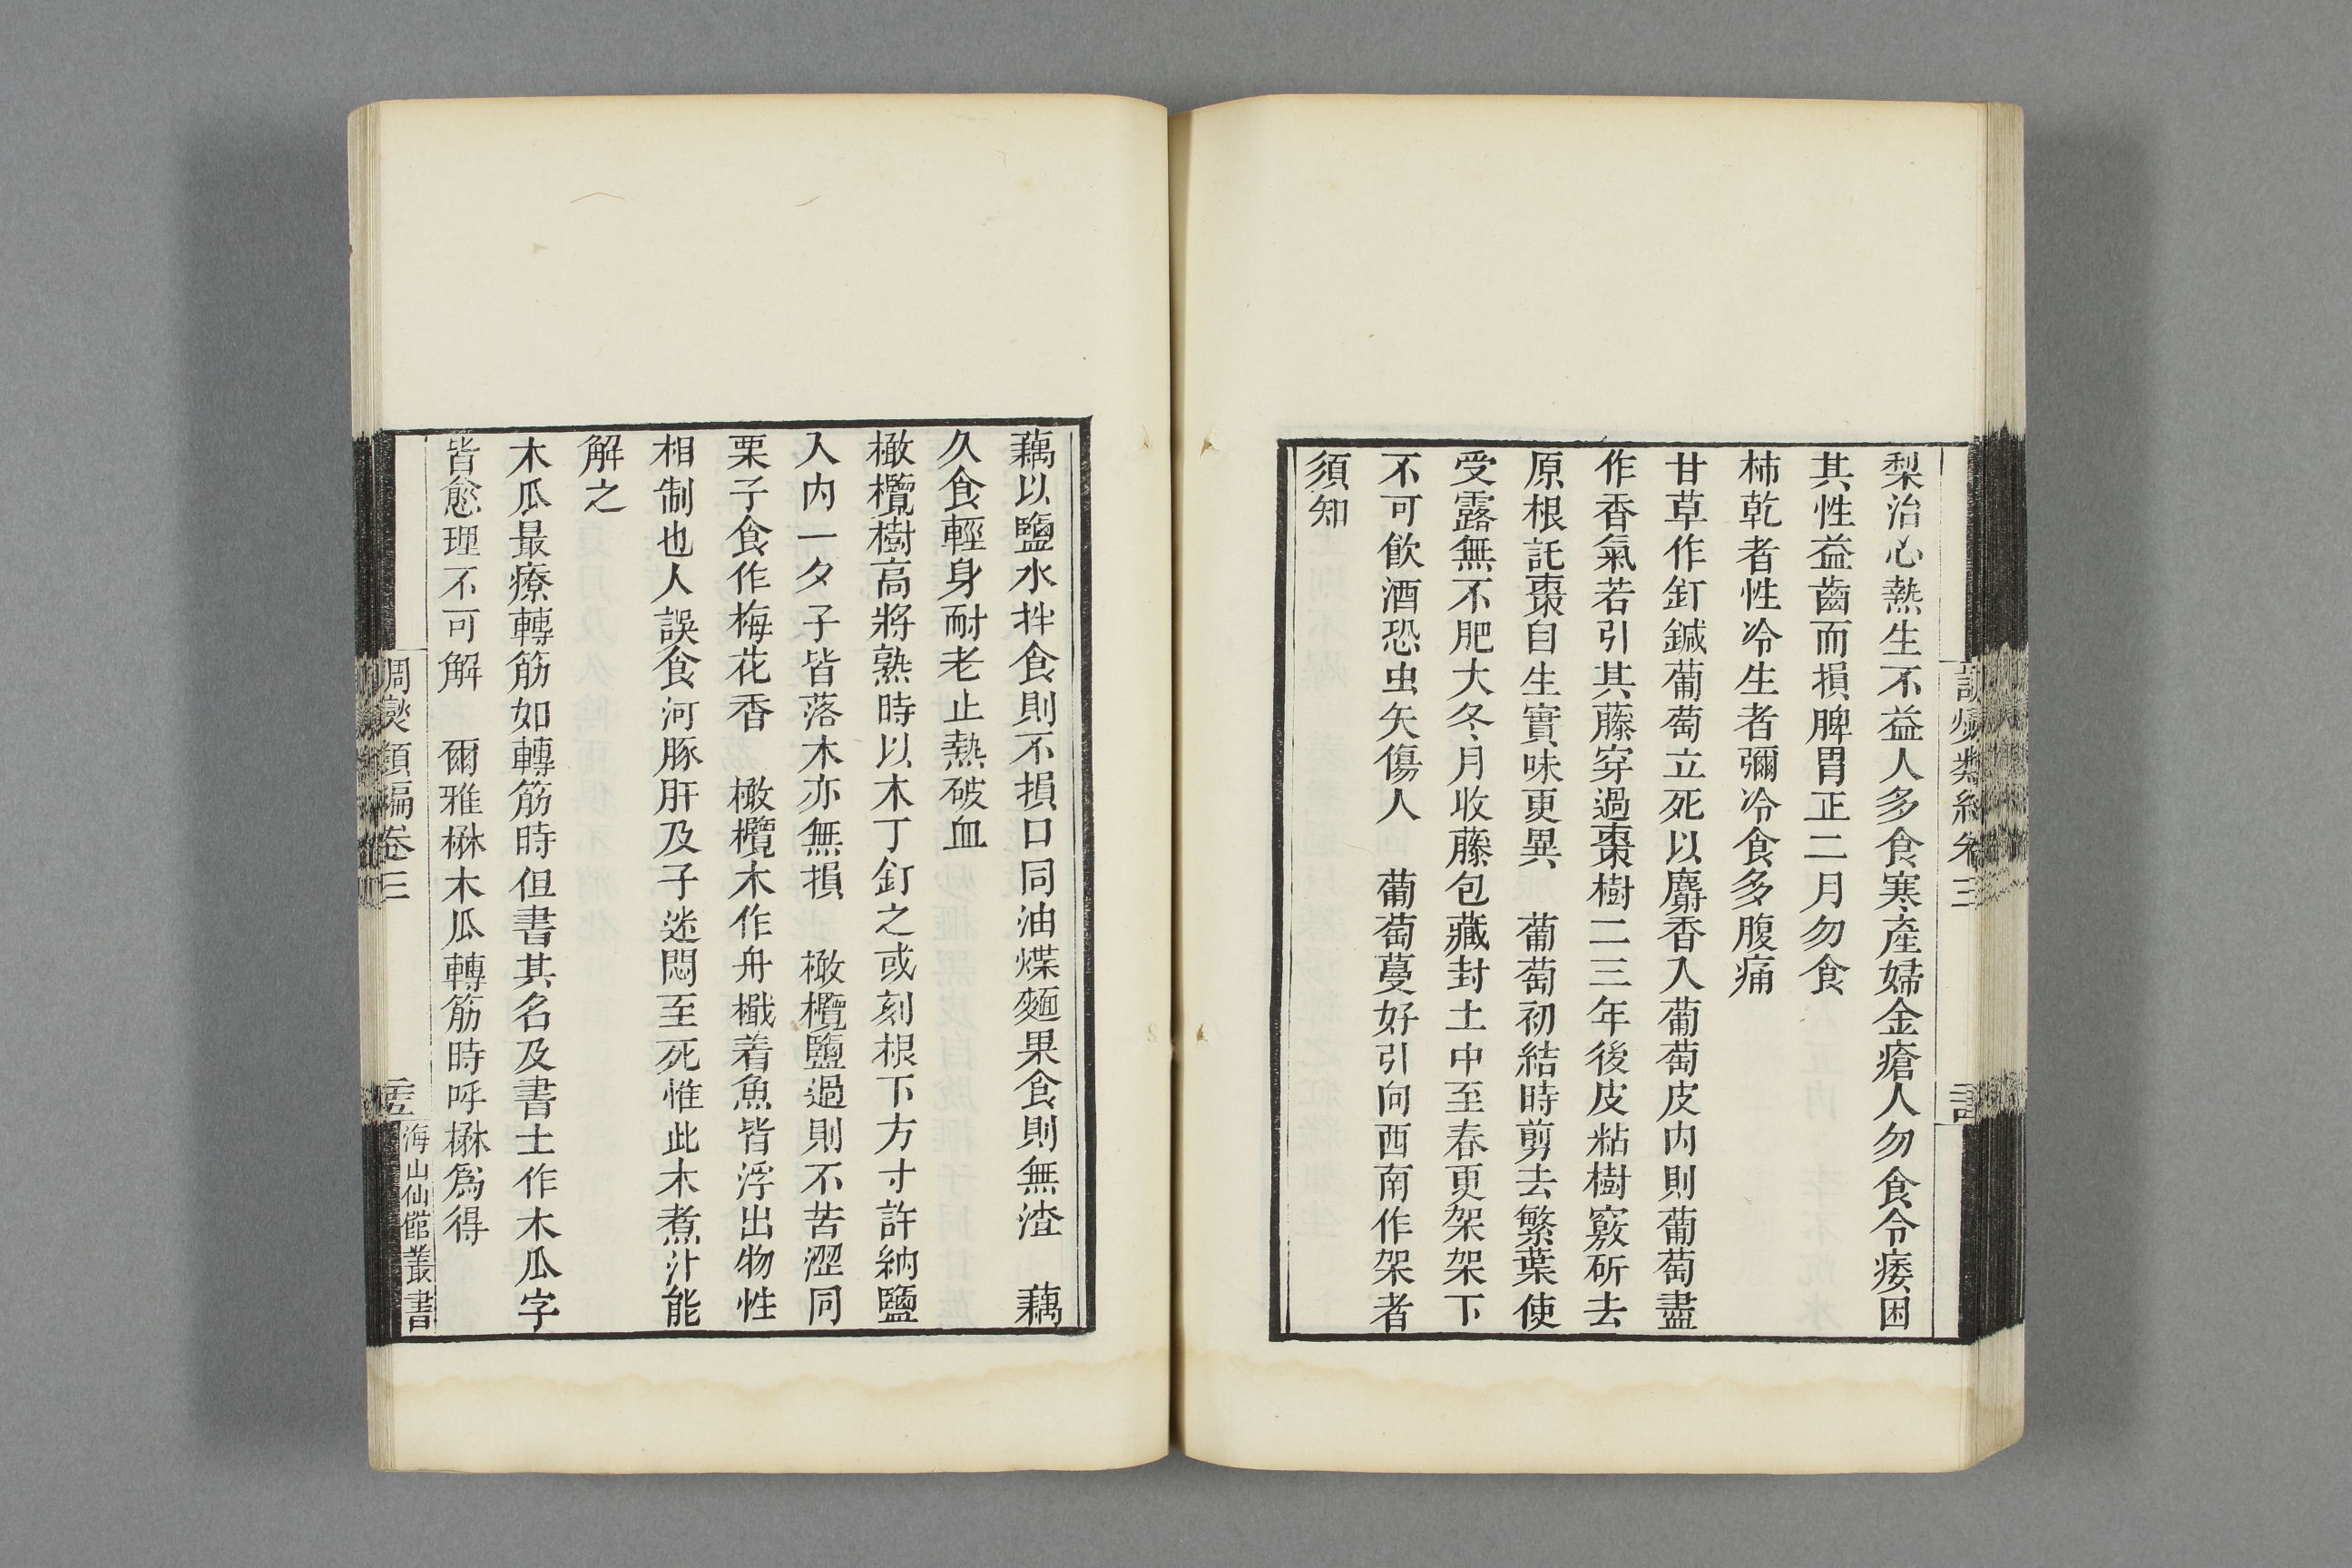 梨治心熱生不益人多食寒產婦金瘡人勿食令痿困
其性益齒而損脾胃正二月勿食
柿乾者性冷生者彌冷食多腹痛
甘草作釘鍼葡萄立死以麝香入葡萄皮內則葡萄盡
作香氣若引其藤穿過棗樹二三年後皮粘樹竅斫去
原根託棗自生實味更異　葡萄初結時剪去繁葉使
受露無不肥大冬月收藤包藏封土中至春更架架下
不可飲酒恐虫矢傷人　葡萄蔓好引向西南作架者
須知
藕以鹽水拌食則不損口同油煠麵果食則無渣　藕
久食輕身耐老止熱破血
橄欖樹高將熟時以木丁釘之或刻根下方寸許納鹽
入內一夕子皆落木亦無損　橄欖鹽過則不苦澀同
栗子食作梅花香　橄欖木作舟檝着魚皆浮出物性
相制也人誤食河豚肝及子迷悶至死惟此木煮汁能
解之
木瓜最療轉筋如轉筋時但書其名及書土作木瓜字
皆愈理不可解　爾雅楙木瓜轉筋時呼楙爲得
調燮類編卷三
海山仙館叢書